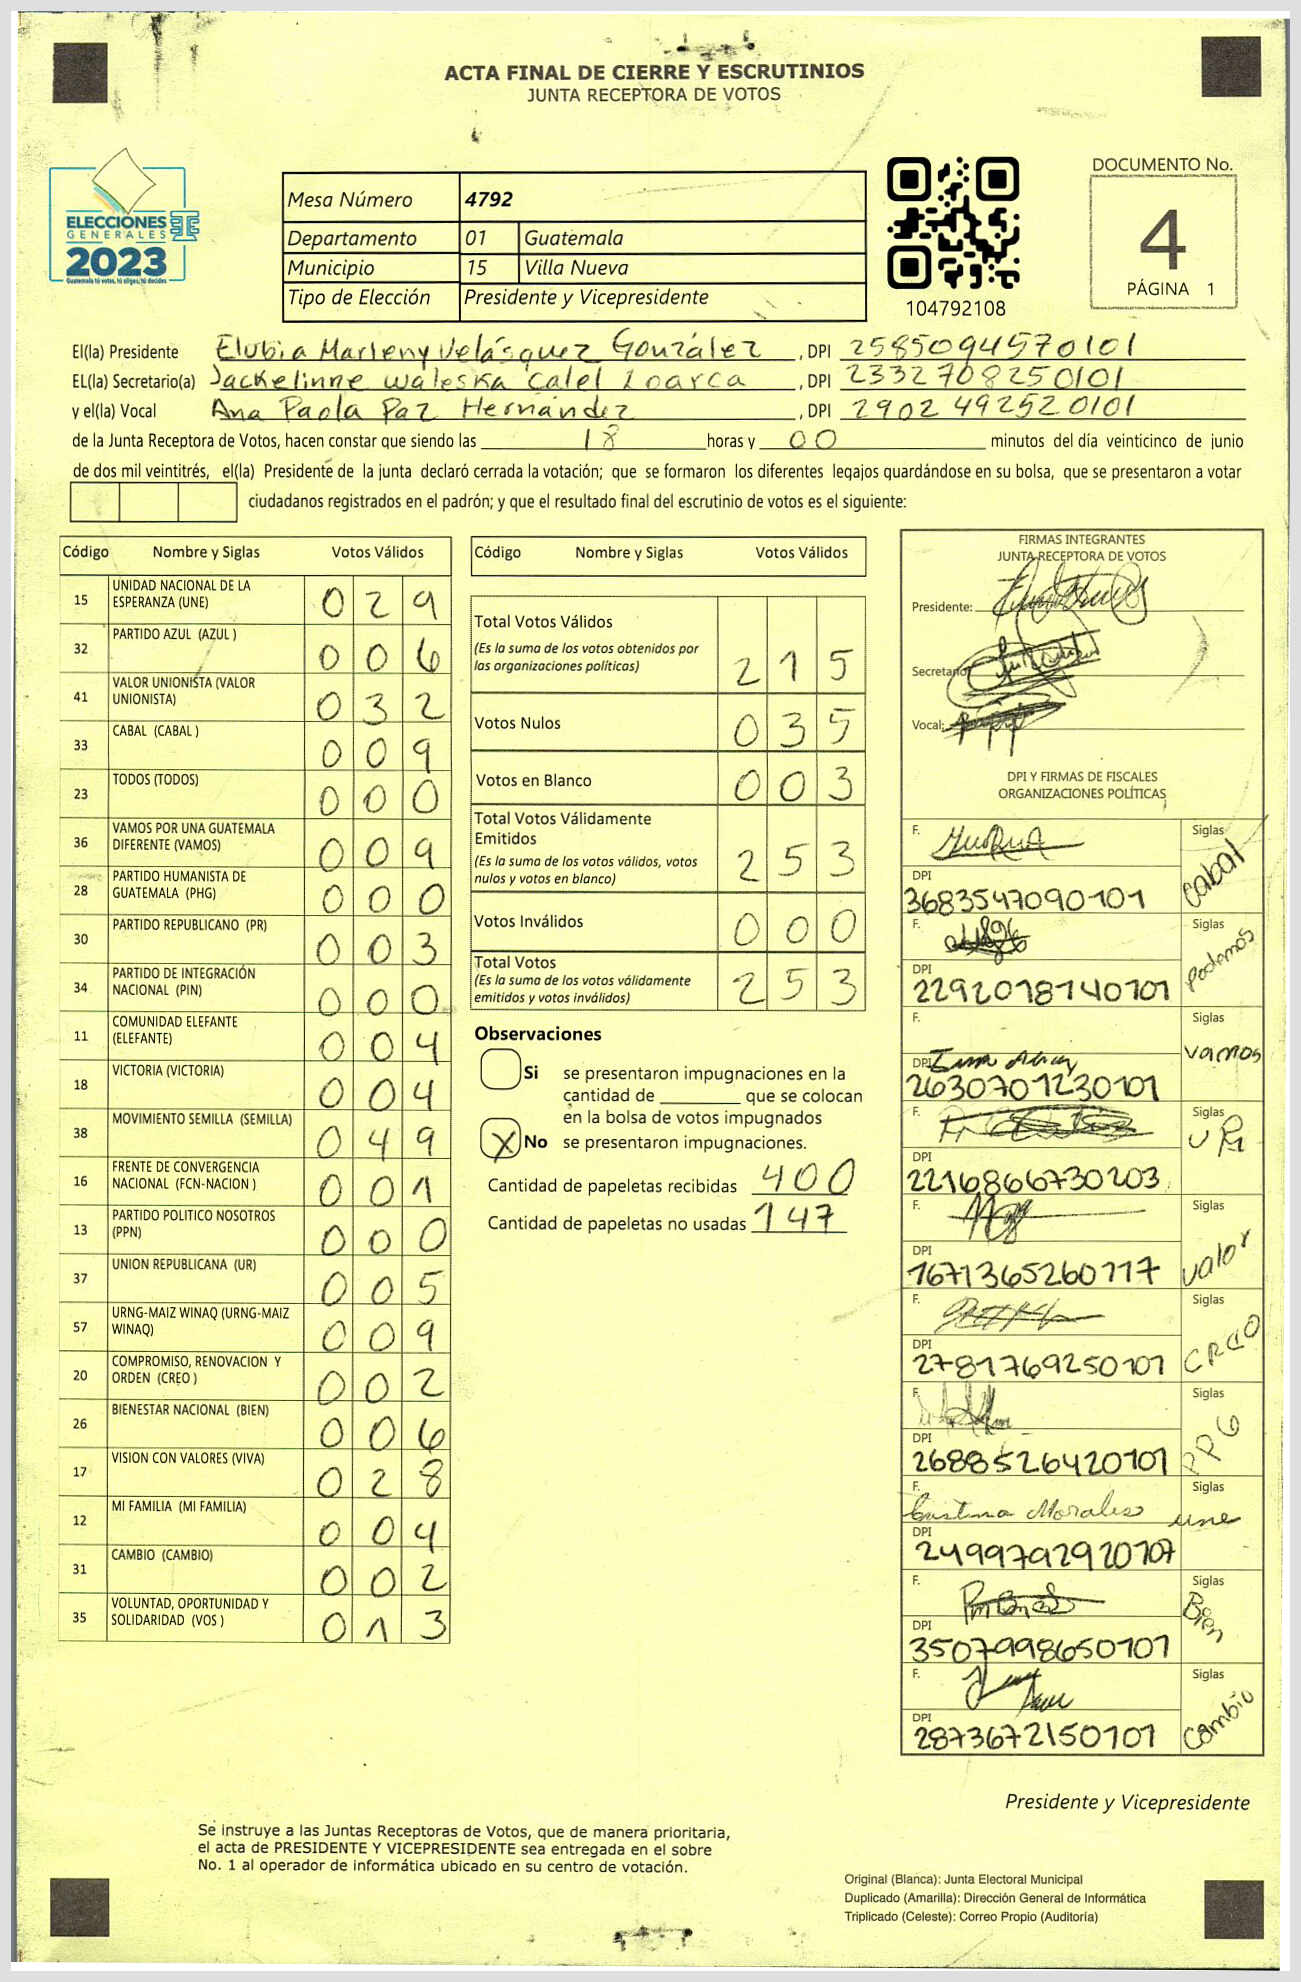 ACTA FINAL DE CIERRE Y ESCRUTINIOS
JUNTA RECEPTORA DE VOTOS
ELECCIONES
GENERALES
2023
Guatemala tú votas, tú eliges, tú decides
Mesa Número 4792
Departamento 01 Guatemala
Municipio 15 Villa Nueva
Tipo de Elección Presidente y Vicepresidente
104792108
DOCUMENTO No.
4
PÁGINA 1
El(la) Presidente Elubia Marleny Velásquez González , DPI 2585094570101
EL(la) Secretario(a) Jackelinne Waleska Calel Loarca , DPI 2332708250101
y el(la) Vocal Ana Paola Paz Hernández , DPI 2902492520101
de la Junta Receptora de Votos, hacen constar que siendo las 18 horas y 00 minutos del día veinticinco de junio
de dos mil veintitrés, el(la) Presidente de la junta declaró cerrada la votación; que se formaron los diferentes legajos guardándose en su bolsa, que se presentaron a votar
ciudadanos registrados en el padrón; y que el resultado final del escrutinio de votos es el siguiente:
Código Nombre y Siglas Votos Válidos
15 UNIDAD NACIONAL DE LA ESPERANZA (UNE) 029
32 PARTIDO AZUL (AZUL ) 006
41 VALOR UNIONISTA (VALOR UNIONISTA) 032
33 CABAL (CABAL ) 009
23 TODOS (TODOS) 000
36 VAMOS POR UNA GUATEMALA DIFERENTE (VAMOS) 009
28 PARTIDO HUMANISTA DE GUATEMALA (PHG) 000
30 PARTIDO REPUBLICANO (PR) 003
34 PARTIDO DE INTEGRACIÓN NACIONAL (PIN) 000
11 COMUNIDAD ELEFANTE (ELEFANTE) 004
18 VICTORIA (VICTORIA) 004
38 MOVIMIENTO SEMILLA (SEMILLA) 049
16 FRENTE DE CONVERGENCIA NACIONAL (FCN-NACION ) 001
13 PARTIDO POLITICO NOSOTROS (PPN) 000
37 UNION REPUBLICANA (UR) 005
57 URNG-MAIZ WINAQ (URNG-MAIZ WINAQ) 009
20 COMPROMISO, RENOVACION Y ORDEN (CREO ) 002
26 BIENESTAR NACIONAL (BIEN) 006
17 VISION CON VALORES (VIVA) 028
12 MI FAMILIA (MI FAMILIA) 004
31 CAMBIO (CAMBIO) 002
35 VOLUNTAD, OPORTUNIDAD Y SOLIDARIDAD (VOS ) 013
Código Nombre y Siglas Votos Válidos
Total Votos Válidos
(Es la suma de los votos obtenidos por las organizaciones políticas) 215
Votos Nulos 035
Votos en Blanco 003
Total Votos Válidamente Emitidos
(Es la suma de los votos válidos, votos nulos y votos en blanco) 253
Votos Inválidos 000
Total Votos
(Es la suma de los votos válidamente emitidos y votos inválidos) 253
Observaciones
Si se presentaron impugnaciones en la
cantidad de ________ que se colocan
en la bolsa de votos impugnados
X No se presentaron impugnaciones.
Cantidad de papeletas recibidas 400
Cantidad de papeletas no usadas 147
FIRMAS INTEGRANTES
JUNTA RECEPTORA DE VOTOS
Presidente:
Secretario
Vocal:
DPI Y FIRMAS DE FISCALES
ORGANIZACIONES POLÍTICAS
F. Siglas cabal
DPI 3683547090101
F. Siglas podemos
DPI 2292018140101
F. Siglas vamos
DPI 2630701230101
F. Siglas
DPI 2216866730203
F. Siglas valor
DPI 1671365260117
F. Siglas CREO
DPI 2781769250101
F. Siglas PPG
DPI 2688526420101
F. Cristina Morales Siglas une
DPI 2499792920107
F. Siglas Bien
DPI 3507998650101
F. Siglas cambio
DPI 2873672150101
Presidente y Vicepresidente
Se instruye a las Juntas Receptoras de Votos, que de manera prioritaria,
el acta de PRESIDENTE Y VICEPRESIDENTE sea entregada en el sobre
No. 1 al operador de informática ubicado en su centro de votación.
Original (Blanca): Junta Electoral Municipal
Duplicado (Amarilla): Dirección General de Informática
Triplicado (Celeste): Correo Propio (Auditoría)